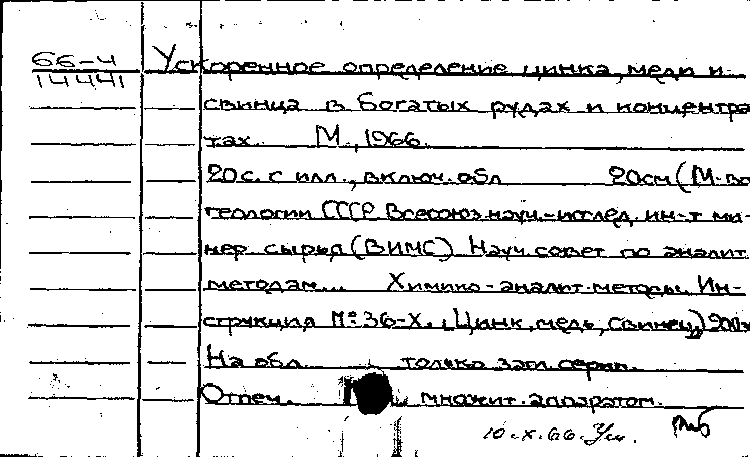 66-4
14441
Ускоренное определение цинка, меди и
свинца в богатых рудах и концентра
тах. М., 1966.
20 с. с илл., включ. обл 20см (М-во
геологии СССР. Всесоюз. науч.-исслед. ин-т ми-
нер. сырья (ВИМС). Науч. совет по аналит.
методам... Химико-аналит. методы. Ин-
струкция № 36-Х. Цинк, медь, свинец)
На обл. только загл. серии.
Отпеч. множит. аппаратом.
10.X.66.